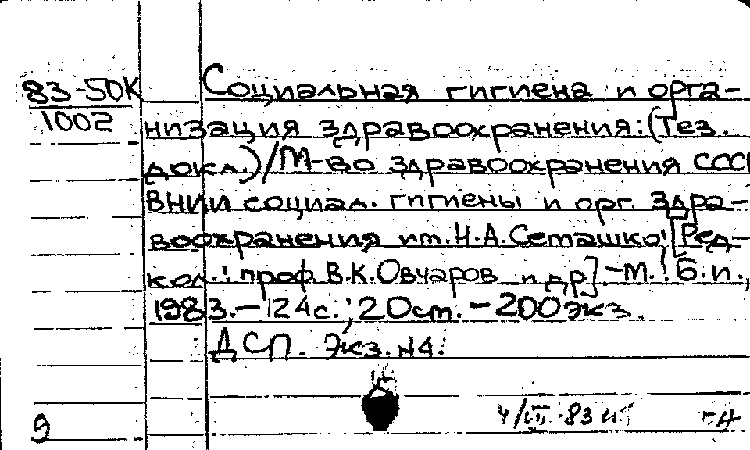 83-50К
1002
Социальная гигиена и орга-
низация здравоохранения: (Тез.
докл.)/М-во здравоохранения СССР
ВНИИ социал. гигиены и орг. здра-
воохранения им. Н.А.Семашко; [Ред-
кол.: проф. В.К.Овчаров и др].-М.: Б.и.,
1983.-124с.; 20см. - 200экз.
ДСП. Экз.N4.
9
4/III-83